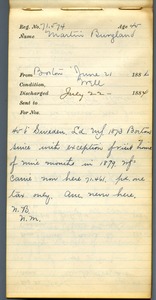 Reg. No. 71,574 Age 45
Name Martin Burgland
From Boston June 21 1886
Condition, Well
Discharged July 22 - 188
Sent to
For Nos.
45 b Sweden Ld N.Y. 1873 Boston
since with exception of visit home
of nine months in 1879. N.Y.
Came now here 71,461. pd. no
tax only. Are never here.
N. B.
N. M.